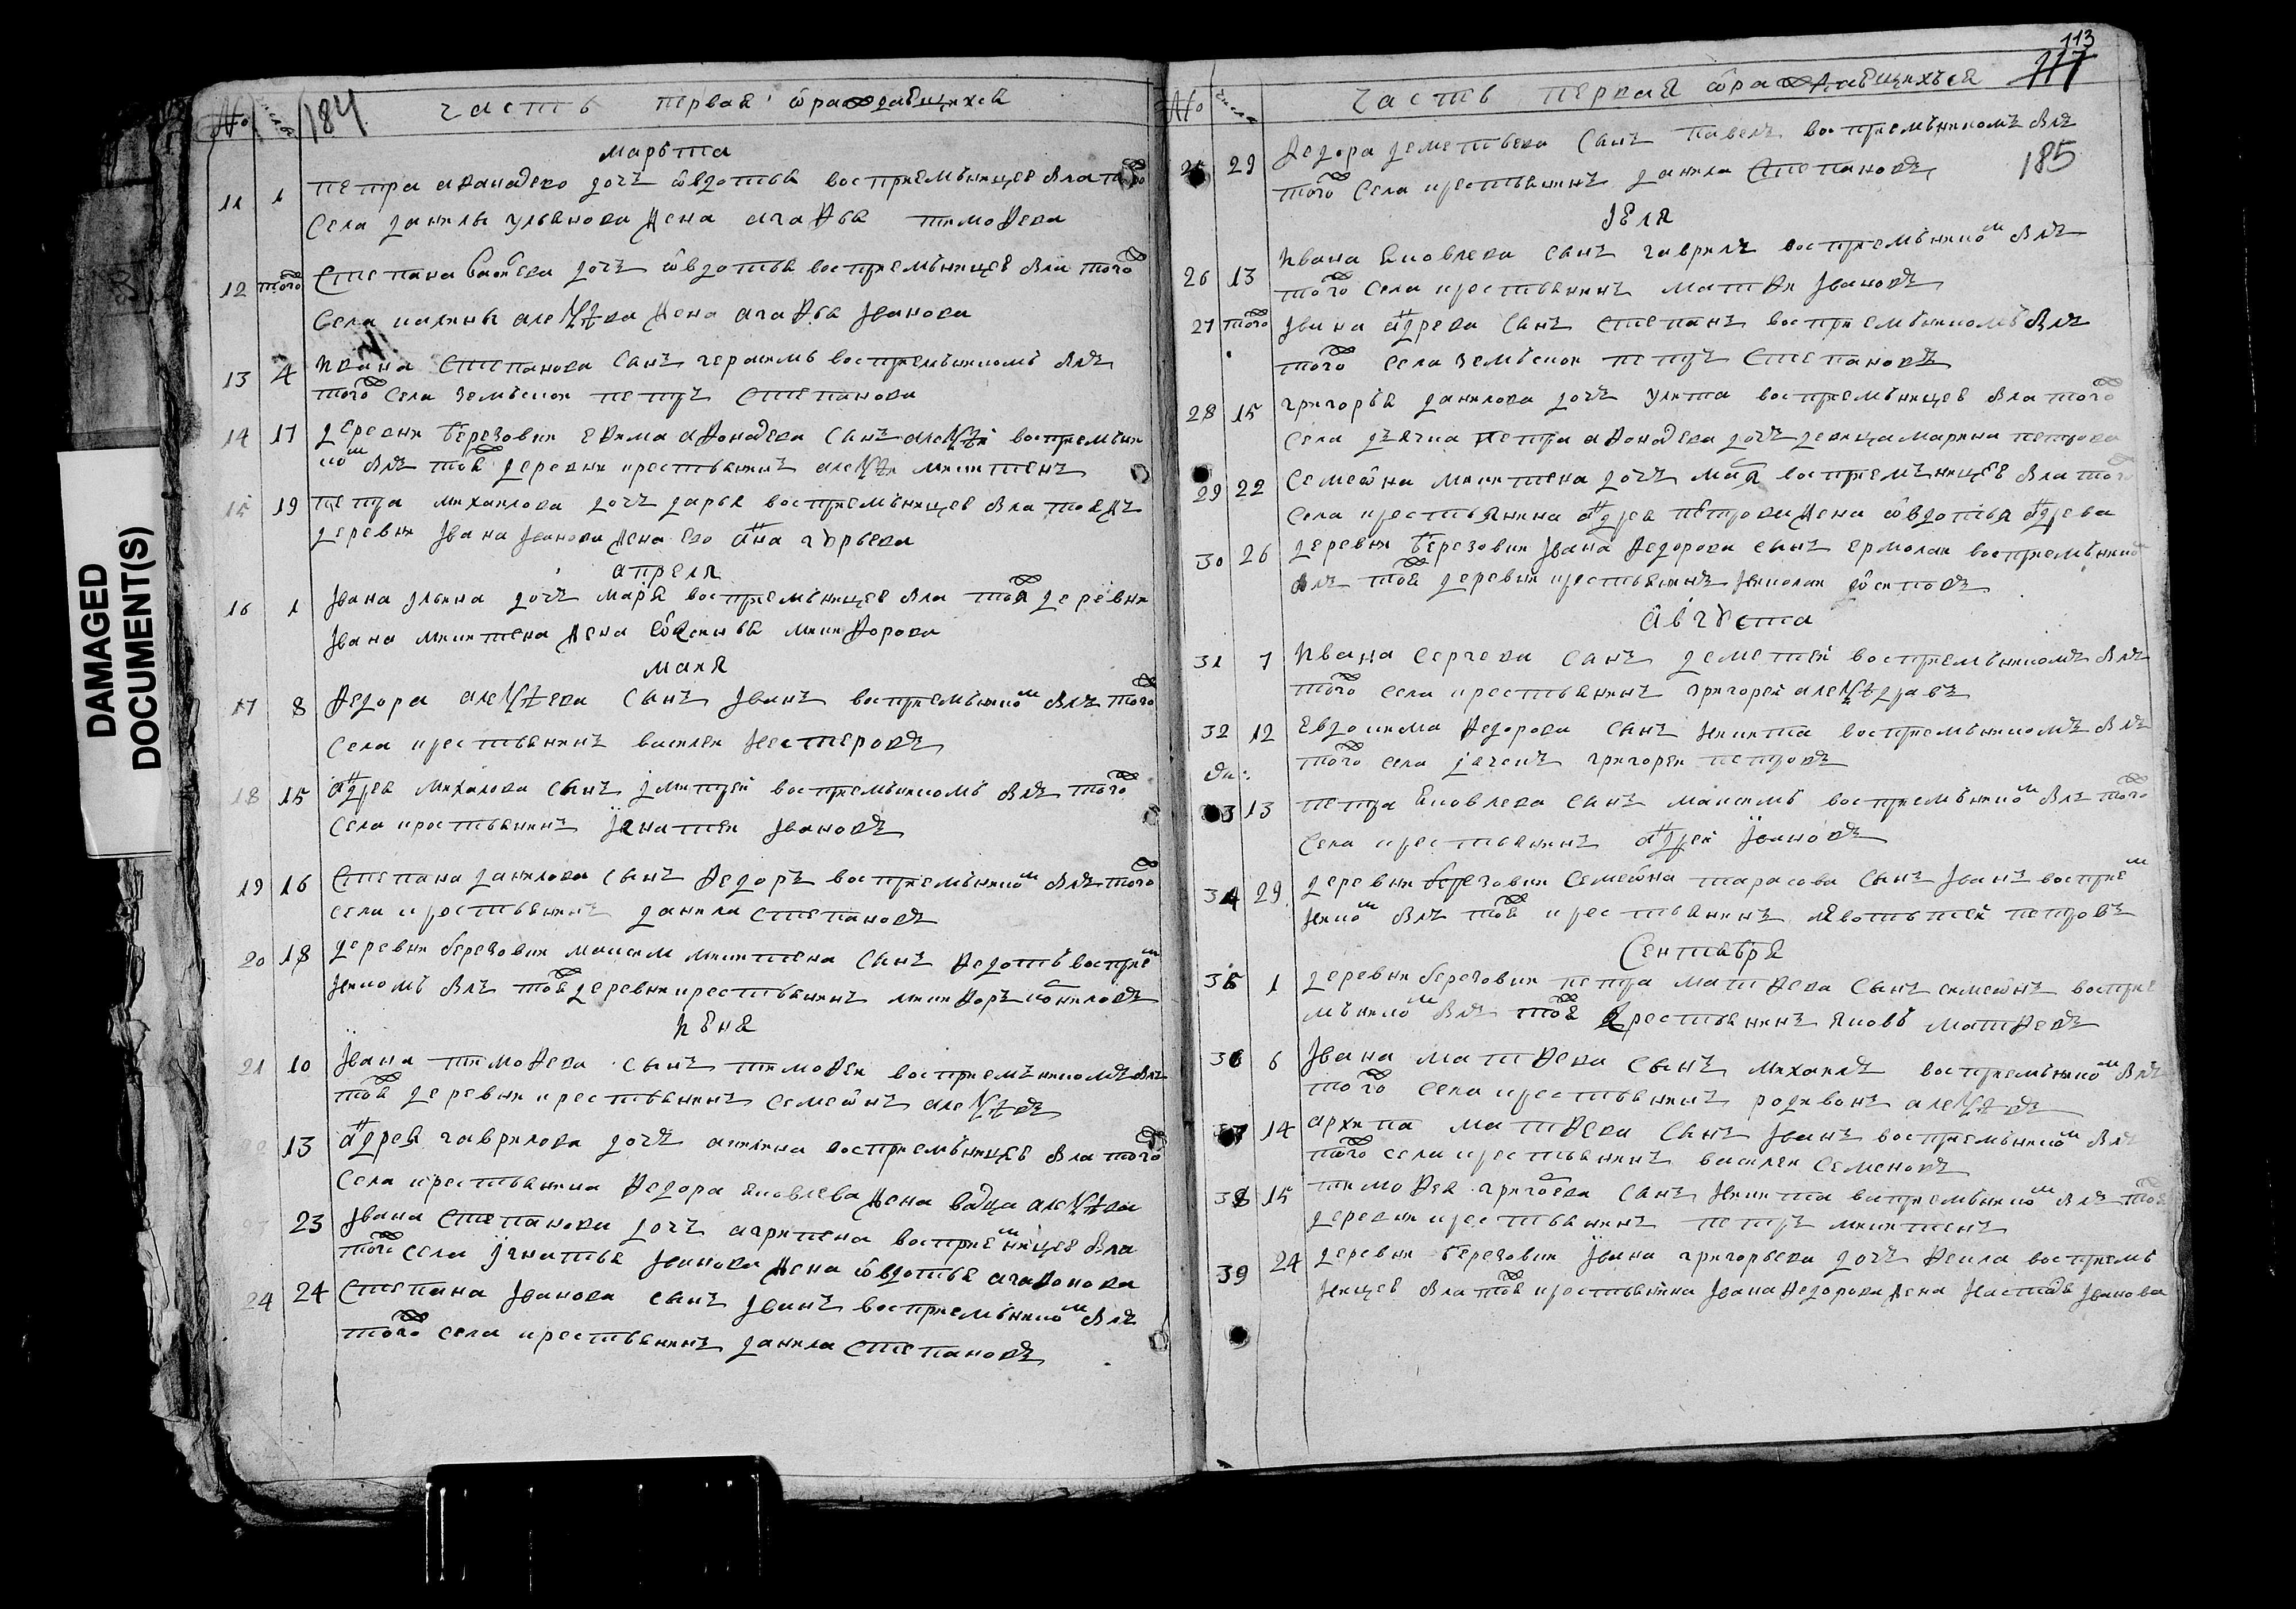 DAMAGED
DOCUMENT(S)
№ числа 184 часть первая ѡ раждающихся
марьта
11 1 петра аѳанасева дочь ѡвдотья восприемьницею была тогоже
села данилы ульянова жена агаѳья тимоѳева
12 тогож Степана дочь ѡвдотья восприемьницею была тогож
села жена агаѳья Iванова
13 4 ивана Степанова сынъ герасимъ восприемьникомъ былъ
тогож села земьской петръ Степановъ
14 17 деревни березовки еѳима аѳонасева сынъ алеѯѣй восприемьни
комъ былъ тояж деревни крестьянинъ алеѯѣй микитенъ
15 19 петра михаилова дочь дарья восприемьницею была тоеже
деревни Iвана Iванова жена ево анна гурьева
апреля
16 1 Iвана ильина дочь марья восприемьницею была тояж деревни
Iвана микитена жена микиѳорова
маия
17 8 ѳедора алеѯѣева сынъ Iванъ восприемьникомъ былъ тогож
села крестьянинъ василеи нестеровъ
18 15 андрея михалова сынъ дмитрей восприемьникомъ былъ тогож
села крестьянинъ игнатеи Iвановъ
19 16 Степана данилова сынъ ѳедоръ восприемьникомъ былъ тогож
села крестьянинъ данила Степановъ
20 18 деревни березовки максим микитена сынъ ѳедотъ восприем
никомъ былъ тояж деревни крестьянинъ микиѳоръ
июня
21 10 Iвана тимоѳева сынъ тимоѳеи восприемъникомъ былъ
тояж деревни крестьянинъ семеѡнъ алеѯѣевъ
13 андрея гаврилова дочь акилина восприемьницею была тогож
села крестьянина ѳедора яковлева жена алеѯѣева
23 Iвана Степанова дочь агрипена восприемницею была
тогож села игнатья Iванова жена ѡвдотья агаѳонова
24 24 Степана Iванова сынъ Iванъ восприемьникомъ былъ
тогож села крестьянинъ данила Степановъ
113
117
№ числа часть первая ѡ раждающихъся
25 29 ѳедора дементьева сынъ павелъ восприемьникомъ былъ
185
тогож села крестьянинъ данила Степановъ
июля
26 13 ивана яковлева сынъ гаврилъ восприемьникомъ былъ
тогож села крестьянинъ матѳеи Iвановъ
27 тогож Iвана андрева сынъ степанъ восприемьникомъ былъ
тогож села земьской петръ Степановъ
28 15 григорья данилова дочь улита восприемьницею была тогож
села дьячка петра аѳонасева дочь девица марина петрова
29 22 семеѡна микитена дочь марья восприемъницею была тогож
села крестьянина андрея петрова жена ѡвдотья андрева
30 26 деревни березовки Iвана ѳедорова сынъ ермолаи восприемьником
былъ тояж деревни крестьянинъ николаи ѡсиповъ
августа
31 7 ивана сергева сынъ дементей восприемьникомъ былъ
тогож села крестьянинъ григореи
32 12 евдокима ѳедорова сынъ никита восприемьникомъ былъ
тогож села дьячекъ григореи петровъ
33 13 петра яковлева сынъ максимъ восприемьникомъ былъ тогож
села крестьянинъ андрей Iвановъ
34 29 деревни березовки семеѡна тарасова сынъ Iванъ восприем
никомъ былъ тояж крестьянинъ петровъ
Сентября
35 1 деревни березовки петра матѳева сынъ семеѡнъ восприе
мьникомъ былъ тояж крестьянинъ яковъ матѳевъ
36 6 Iвана матѳева сынъ михаилъ восприемьникомъ былъ
тогож села крестьянинъ родивонъ алеѯѣевъ
37 14 архипа матѳева сынъ Iванъ восприемьникомъ былъ
тогож села крестьянинъ василеи семеновъ
38 15 тимоѳея григорева сынъ никита восприемьникомъ былъ тояж
деревни крестьянинъ петръ микитенъ
39 24 деревни березовки Iвана григорьева дочь ѳекла восприемь
ницею была тояж крестьянина Iвана ѳедорова жена настасья Iванова